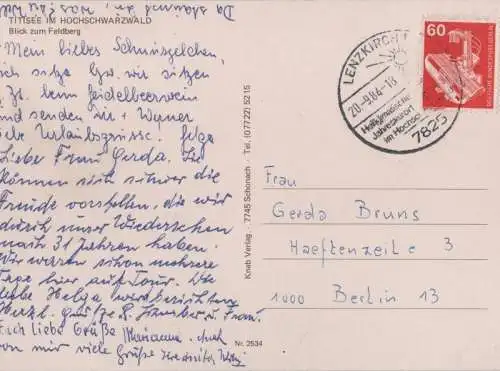 Da staunst du, was
TITISEE IM HOCHSCHWARZWALD
Blick zum Feldberg
Mein liebes Schnuselchen,
ich sitze bzw. wir sitzen
z. Zt. beim Heidelbeerwein
und senden dir + Werner
liebe Urlaubsgrüsse. Helga
Liebe Frau Gerda. Sie
können sich schwer die
Freude vorstellen, die wir
durch unser Wiedersehen
nach 31 Jahren haben.
Wir waren schon mehrere
Tage hier auf Tour. Die
liebe Helga wird berichten
Herzl. Grüße R. u. Frau.
Euch liebe Grüße Marianne. Auch
von mir viele Grüße
Knab Verlag · 7745 Schonach · Tel. (07722) 5215
Nr. 2534
LENZKIRCH
20.-9.84-18
Heilklimatischer
Jahreskurort
im Hochschw
7825
60
DEUTSCHE BUNDESPOST
Frau
Gerda Bruns
Haeftenzeile 3
1000 Berlin 13